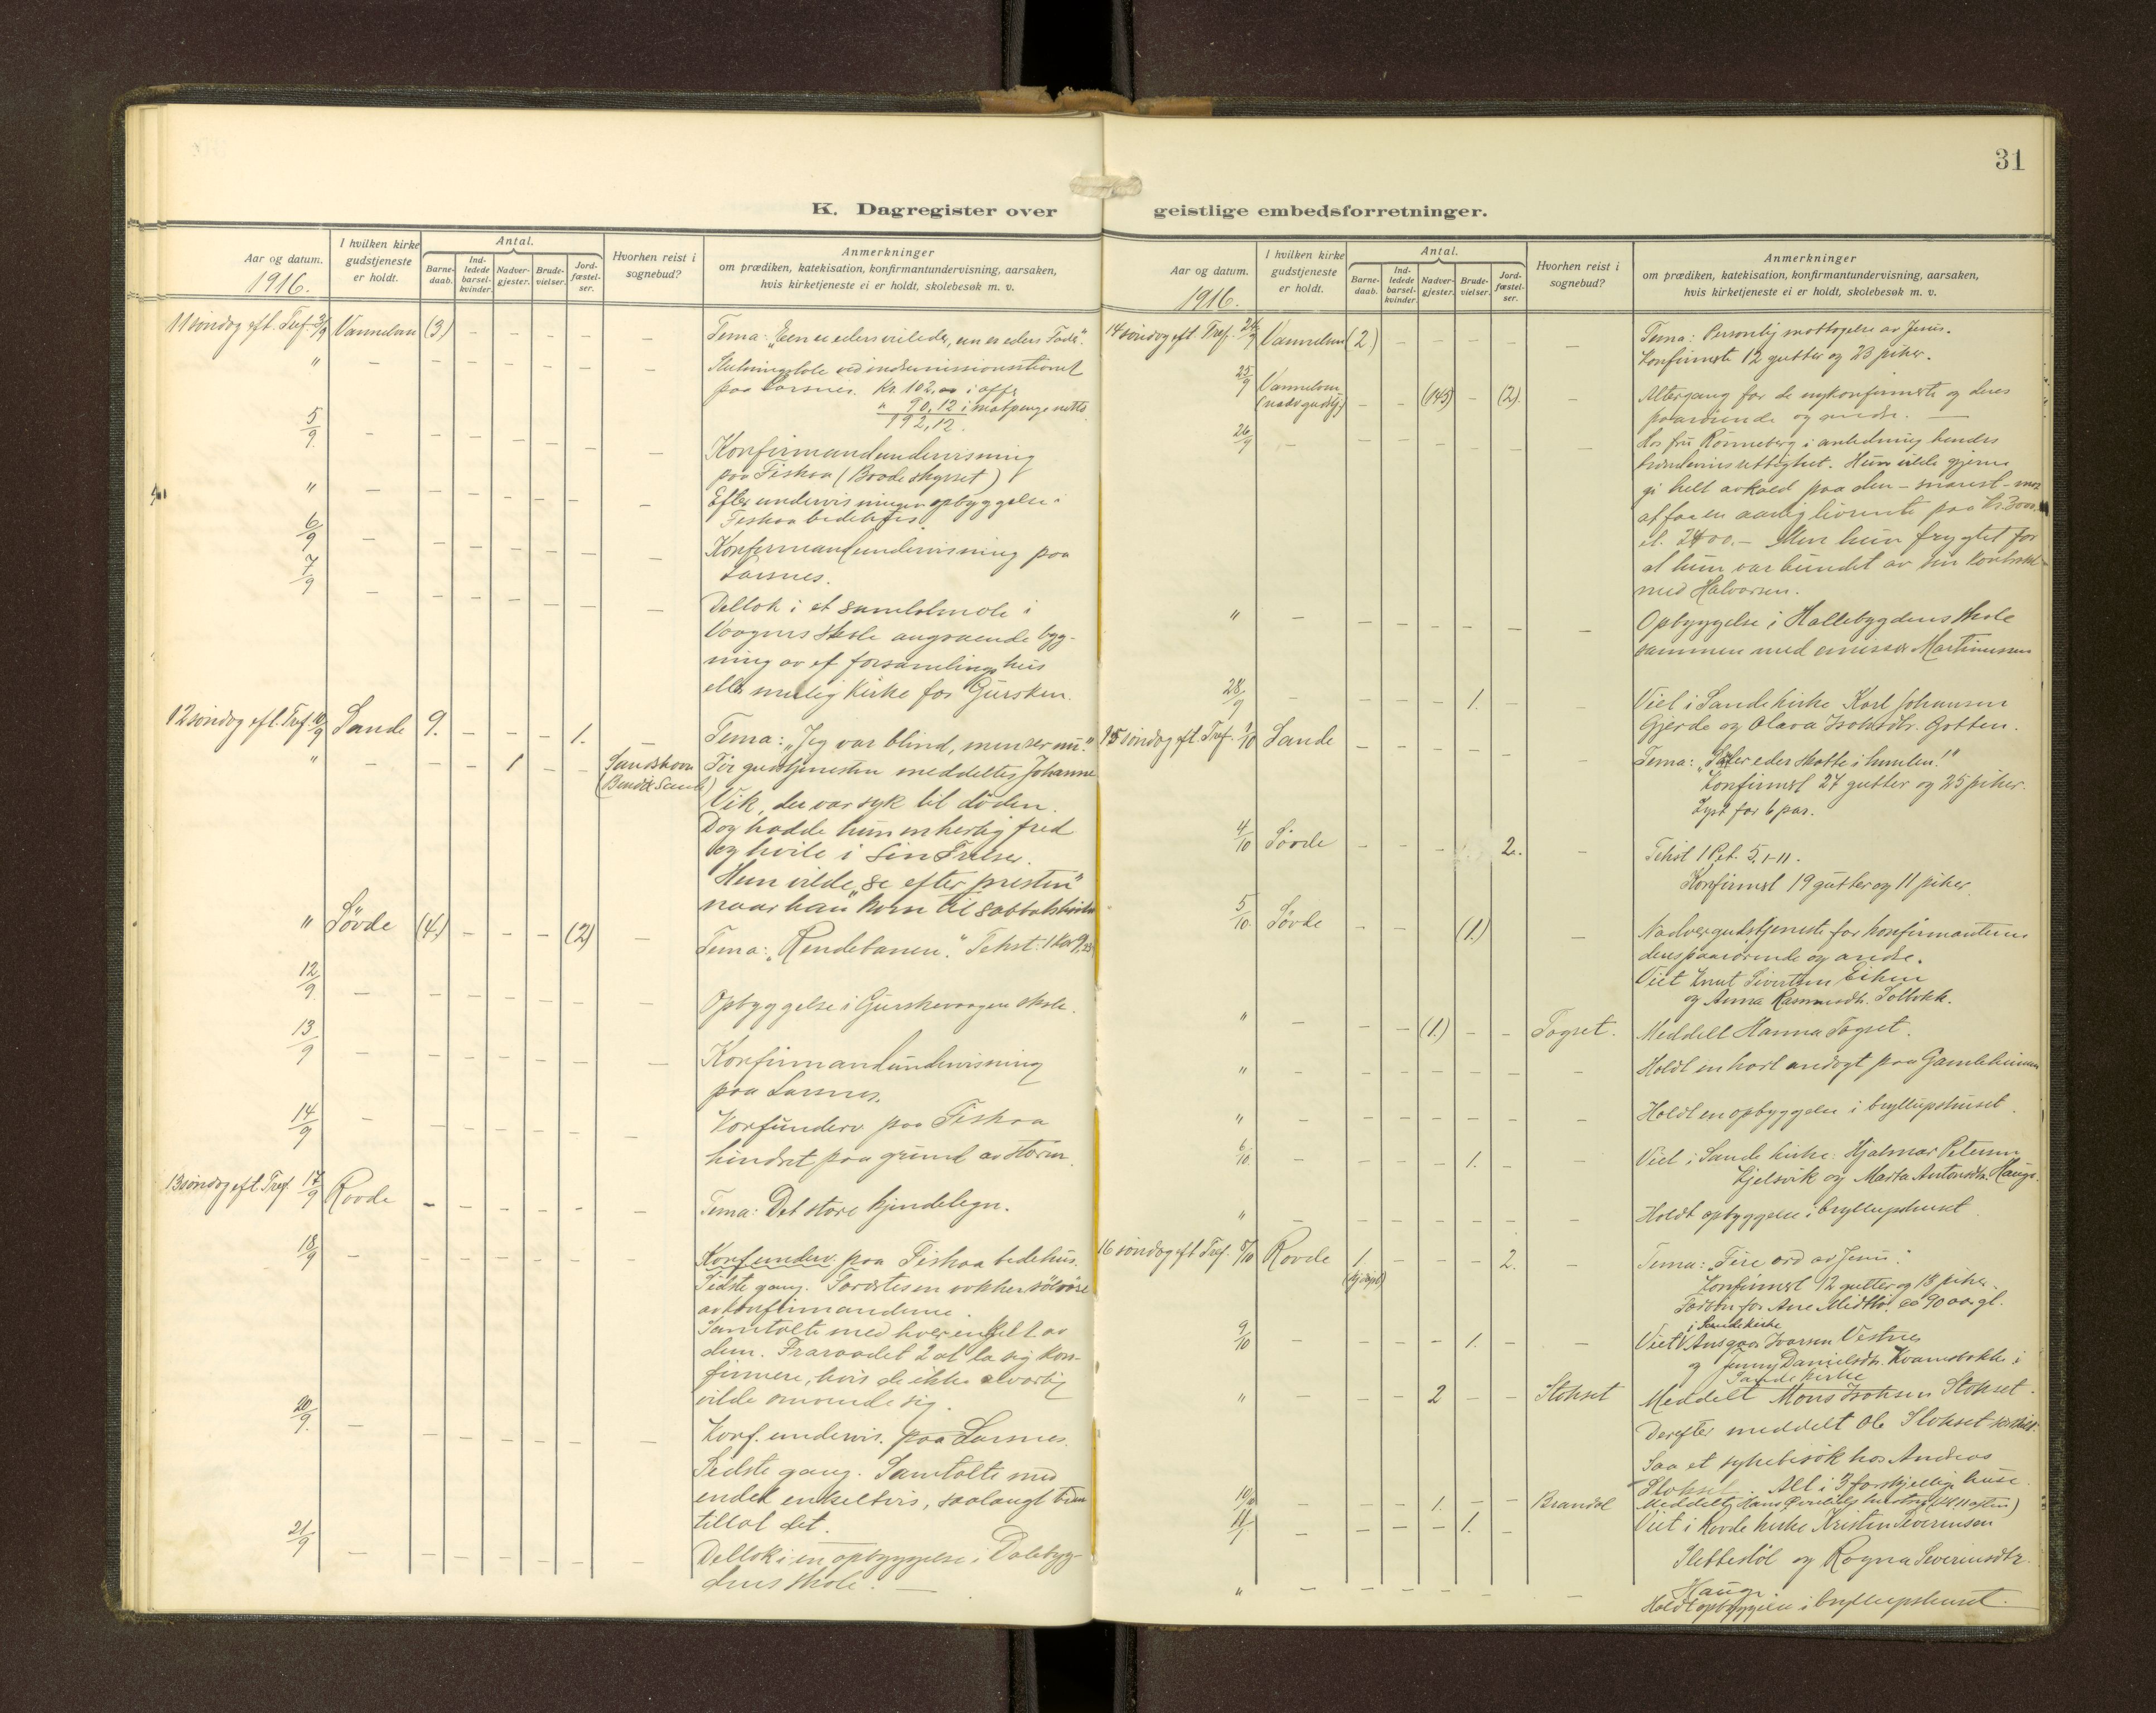 31
K. Dagregister over
geistlige embedsforretninger.
Aar og datum.
1916.
I hvilken kirke
gudstjeneste
er holdt.
Antal.
Barne-
daab.
Ind-
ledede
barsel-
kvinder.
Nadver-
gjester.
Brude-
vielser.
Jord-
fæstel-
ser.
Hvorhen reist i
sognebud?
Anmerkninger
om prædiken, katekisation, konfirmantundervisning, aarsaken,
hvis kirketjeneste ei er holdt, skolebesøk m. v.
11 söndag eft. Tref. 3/9 Vannelven (3) – – – – –
Tema: "Een er eders veileder, een er eders Fader".
" – – – – – – –
Slutningstale ved indremissionsstevnet
paa Larsnes. Kr. 102,00 i offer
" 90,12 i matpenge netto
192,12.
5/9 – – – – – – – Konfirmandundervisning
paa Fiskaa (Baadeskysset)
" – – – – – – – Efter undervisningen opbyggelse i
Fiskaa bedehus.
6/9 – – – – – – – Konfirmandundervisning paa
Larsnes.
7/9 – – – – – – – Deltok i et samtalemøte i
Vaagnes skole angaaende byg-
ning av et forsamlingshus
eller mulig kirke for Gursken.
12 söndag eft. Tref. 10/9 Sande 9. – – – 1. –
Tema: "Jeg var blind, men ser nu."
" – – – 1 – – Sandshavn
(Bendix Sand)
Før gudstjenesten meddeltes Johanne
Vik, der var syk til døden.
Dog hadde hun en herlig fred
og hvile i sin Frelser.
Hun vilde "se efter presten"
naar han kom til
" Søvde (4) – – – (2) –
Tema: "Rendebanen." Tekst: 1 Kor 9,
12/9. – – – – – – – Opbyggelse i Gurskevaagen skole.
13/9 – – – – – – – Konfirmandundervisning
paa Larsnes.
14/9 – – – – – – – Konfunderv. paa Fiskaa
hindret paa grund av storm.
13 söndag eft. Tref. 17/9 Rovde – – – – – –
Tema: Det store kjendetegn.
18/9 – – – – – – Konf underv. paa Fiskaa bedehus.
Sidste gang.
av konfirmanderne.
Samtalte med hver enkelt av
dem. Fraraadet 2 at la sig kon-
firmere, hvis de ikke alvorlig
vilde omvende sig.
20/9. – – – – – – – Konf. undervis. paa Larsnes.
Sidste gang. Samtalte med
endel enkeltvis, saalangt tiden
tillot det.
21/9 – – – – – – – Deltok i en opbyggelse i Dalebyg-
dens skole. –
Aar og datum.
1916.
I hvilken kirke
gudstjeneste
er holdt.
Antal.
Barne-
daab.
Ind-
ledede
barsel-
kvinder.
Nadver-
gjester.
Brude-
vielser.
Jord-
fæstel-
ser.
Hvorhen reist i
sognebud?
Anmerkninger
om prædiken, katekisation, konfirmantundervisning, aarsaken,
hvis kirketjeneste ei er holdt, skolebesøk m. v.
14 söndag eft. Tref. 24/9 Vannelven (2) – – – – –
Tema: Personlig mottagelse av Jesus.
Konfirmerte 12 gutter og 23 piker.
25/9 Vannelven
(nadv gudstj.) – – (143) – (2). –
Altergang for de nykonfirmerte og deres
paarørende og andre. –
26/9 – – – – – – – Hos fru Rønneberg i anledning hendes
Hun vilde gjerne
gi helt avkald paa den – snarest – mot
at faa en aarlig livrente paa kr. 3000
el. 2400.– Men hun frygtet for
at hun var bundet av sin kontrakt
med Halvorsen.
" – – – – – – – Opbyggelse i Hallebygdens skole
sammen med emissær Martinussen
28/9 – – – – 1. – – Viet i Sande kirke Karl Johansen
Gjerde og Olava Isaksdtr. Gotten.
15 söndag eft. Tref. 1/10 Sande – – – – – –
Tema: "Saler eder skatte i himlen!"
Konfirmert 27 gutter og 25 piker.
Lyst for 6 par.
4/10 Søvde – – – 2. –
Tekst 1 Pet. 5, 1-11.
Konfirmert 19 gutter og 11 piker.
5/10. Søvde – – (1.) –
Nadvergudstjeneste for konfirmanterne
deres paarørende og andre.
Viet Knut Sivertsen Eiken
og Anna Rasmusdtr. Solbakk.
" – – – (1.) – – Tagset. Meddelt Hanna Tagset.
" – – – – – – – Holdt en kort andagt paa Gamleheimen
" – – – – – – – Holdt en opbyggelse i bryllupshuset.
6/10. – – – – 1. – – Viet i Sande kirke: Hjalmar Petersen
Kjelsvik og Marta Antonsdtr. Hauge.
" – – – – – – – Holdt opbyggelse i bryllupshuset.
16 söndag eft Tref. 8/10 Rovde 1 – – – 2. –
(hj.døpt)
Tema: Fire ord av Jesus.
Konfirmert 12 gutter og 13 piker.
9/10 – – – – 1. – – i Sande kirke
Viet Ansgar Ivarsen Vestnes
og Jenny Danielsdtr. Kvamsbakk i
Sande kirke
" – – – 2 – – Stokset Meddelt Mons Isaksen Stokset.
Derefter meddelt Ole Stokset
Saa et sykebesøk hos Andreas
Stokset. Alt i 3 forskjellige huse.
10/10 – – – 1. – – Brandal
11/ – – – – 1. – – Viet i Rovde kirke Kristen Severinsen
Slettestøl og Ragna Severinsdtr.
Hauge.
" – – – – – – – Holdt opbyggelse i bryllupshuset.